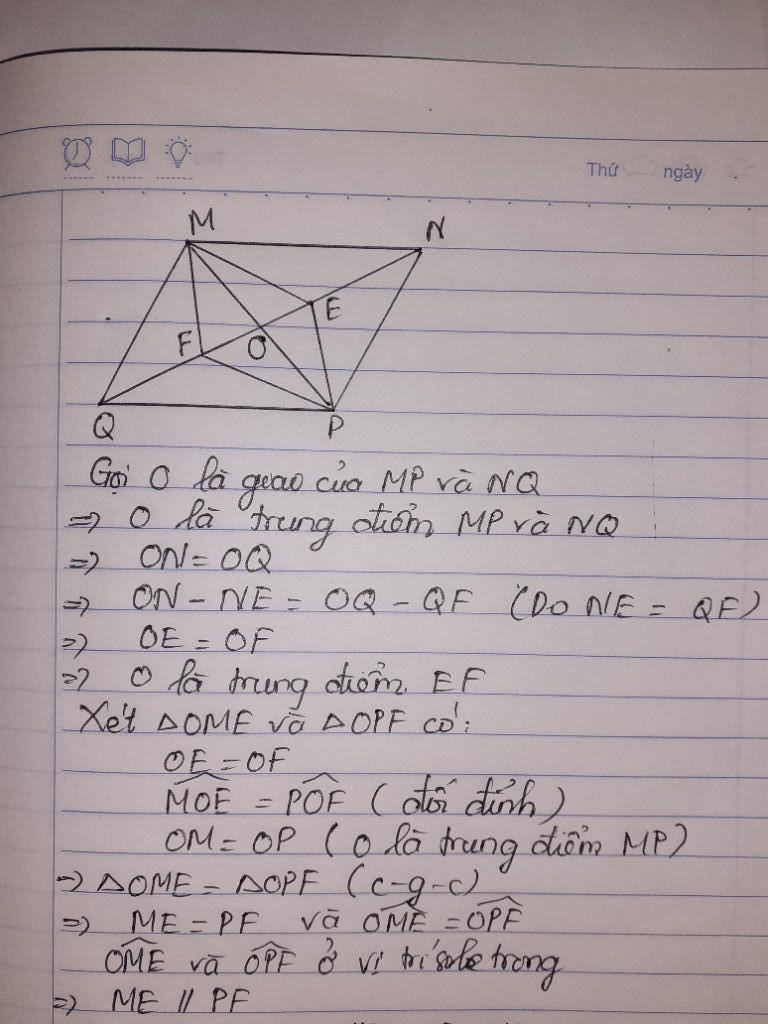 Thứ ngày
M N
E
F O
Q P
Gọi O là giao của MP và NQ
=> O là trung điểm MP và NQ
=> ON = OQ
=> ON - NE = OQ - QF (Do NE = QF)
=> OE = OF
=> O là trung điểm EF
Xét △OME và △OPF có:
OE = OF
\widehat{MOE} = \widehat{POF} (đối đỉnh)
OM = OP (O là trung điểm MP)
=> △OME = △OPF (c-g-c)
=> ME = PF và \widehat{OME} = \widehat{OPF}
\widehat{OME} và \widehat{OPF} ở vị trí sole trong
=> ME // PF